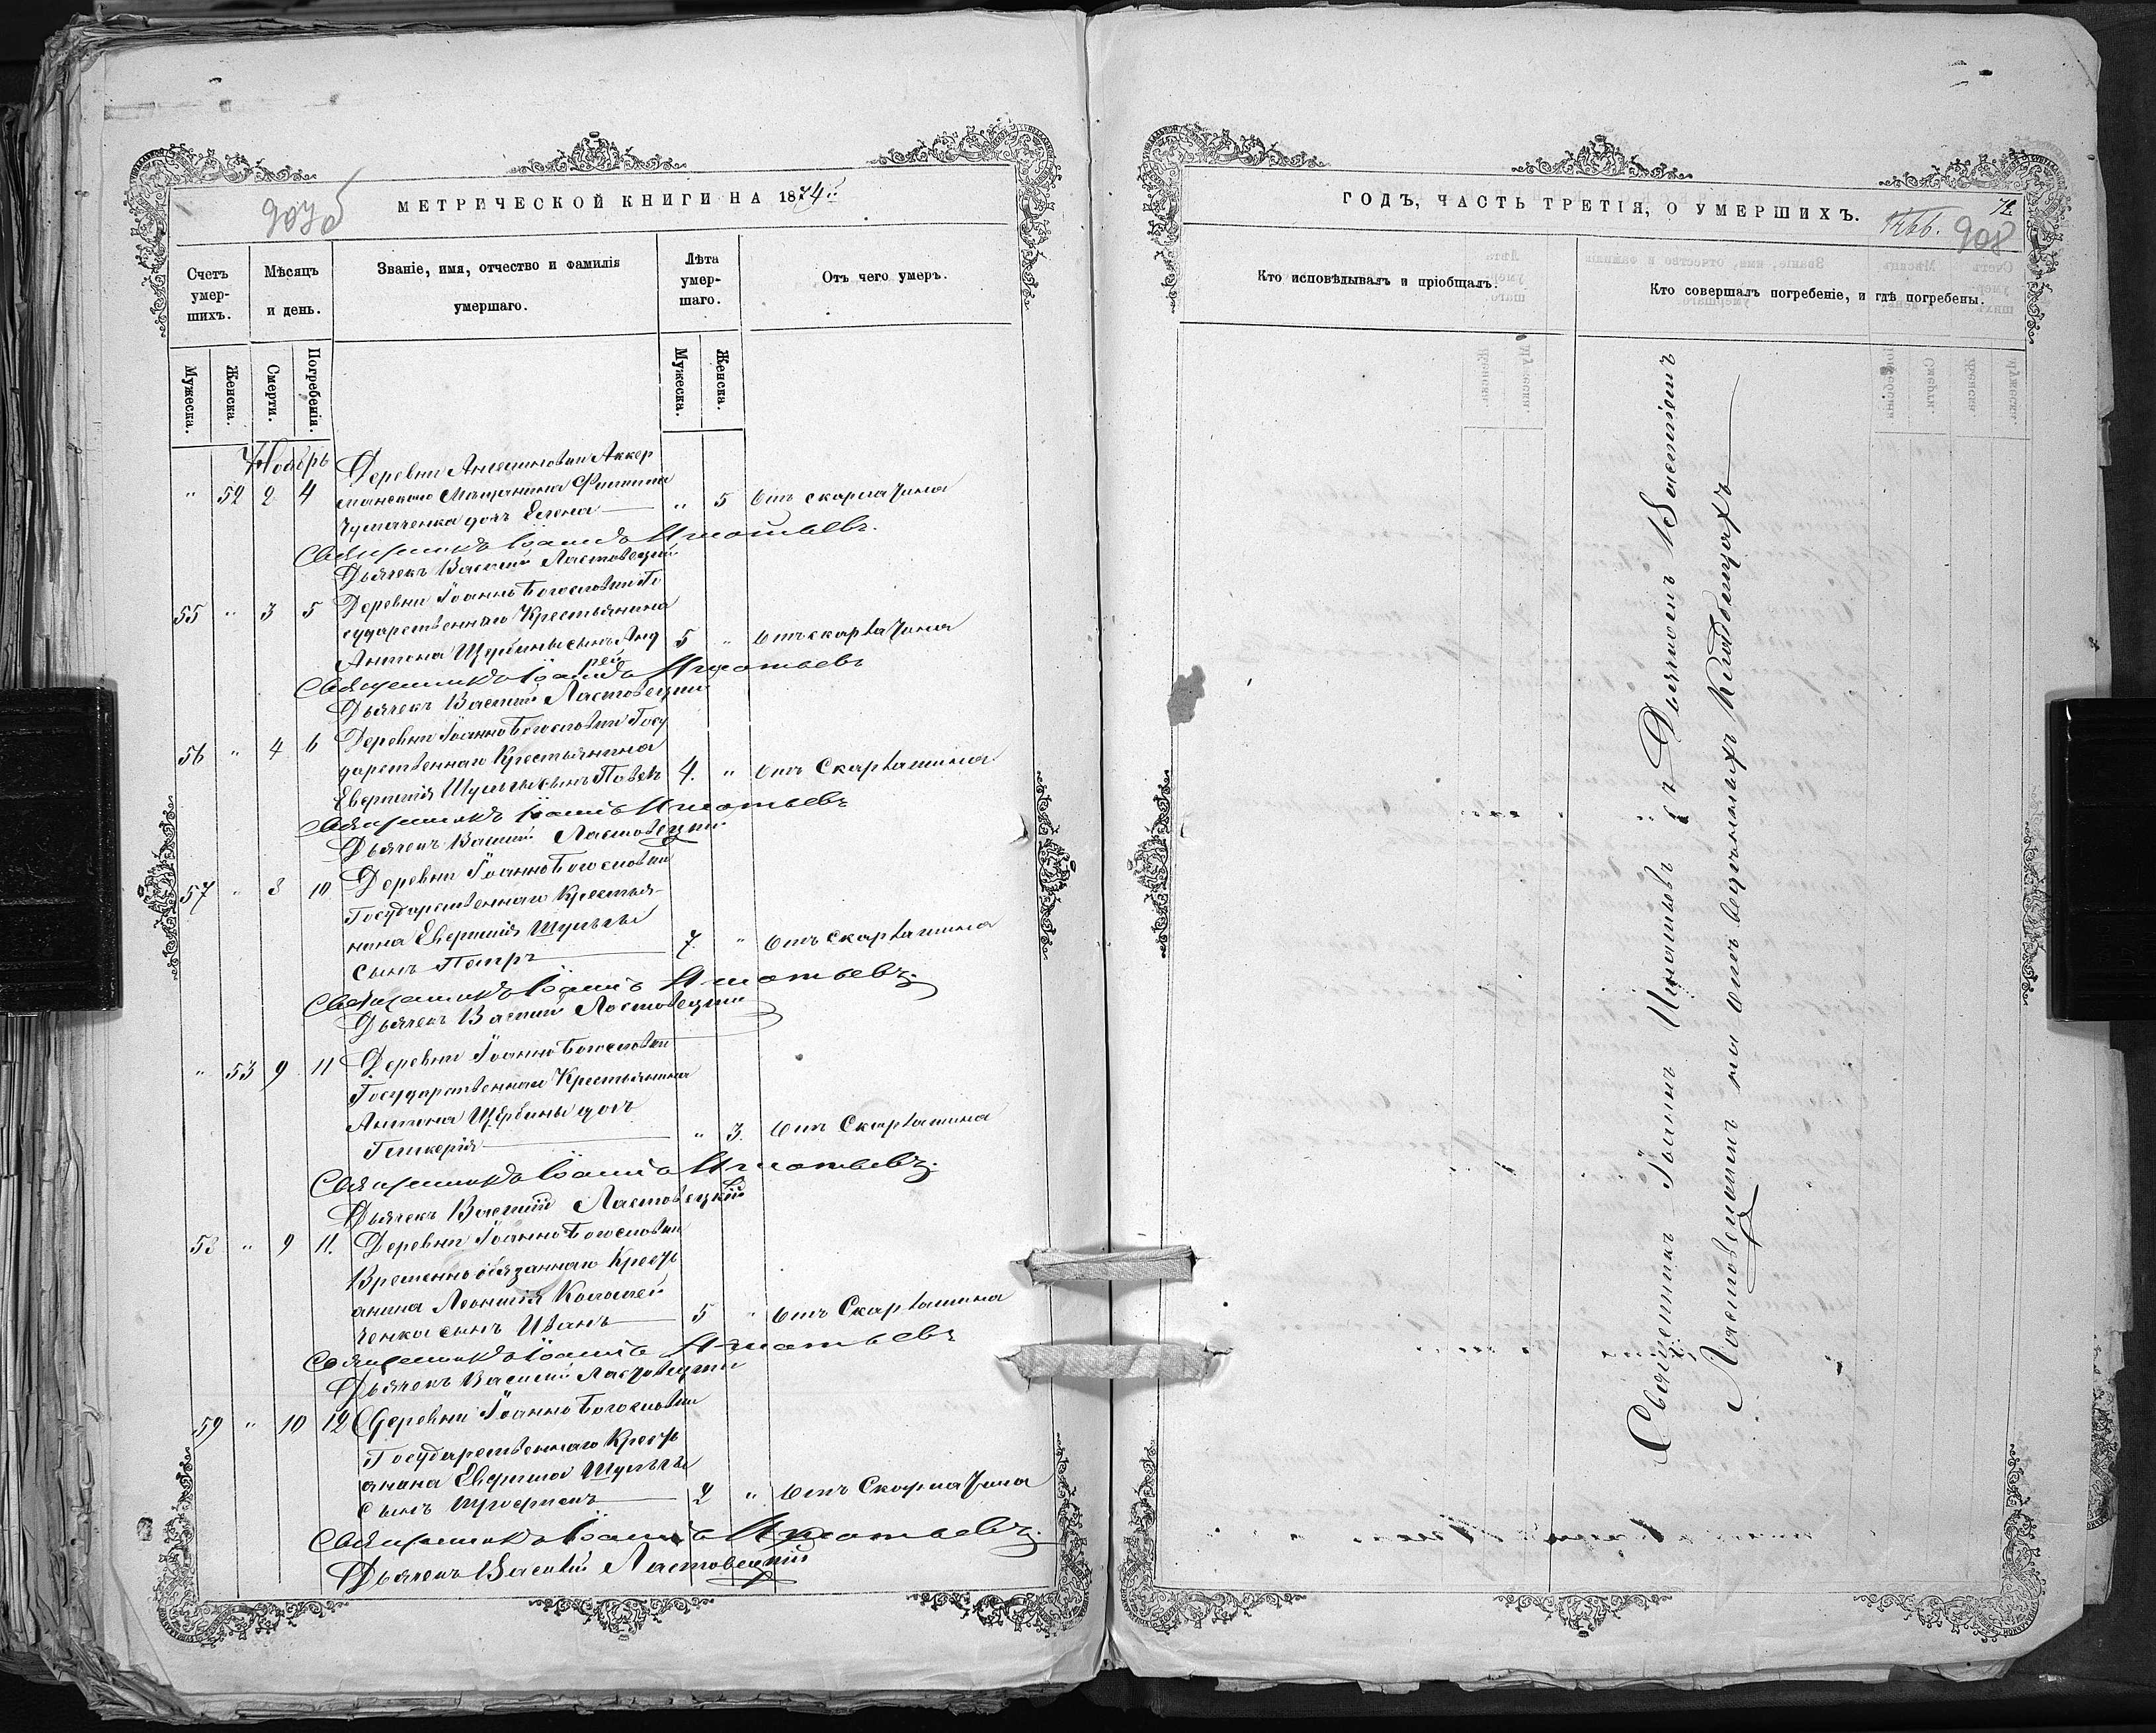 907об
МЕТРИЧЕСКОЙ КНИГИ НА 1874й
Счетъ умер-шихъ.
Мѣсяцъ и день.
Званіе, имя, отчество и фамилія умершаго.
Лѣта умер-шаго.
Отъ чего умеръ.
Мужеска.
Женска.
Смерти.
Погребенія.
Мужеска.
Женска.
Ноябрь
Деревни Аккер
" 52 2 4 манскаго Мѣщанина Филиппа
дочь Елена " 5 Отъ скарлатина
Священникъ Іоаннъ Игнатьевъ.
Дьячекъ Василій Ластовецкій
Деревни Іоанно Богословки Го
55 " 3 5 сударственнаго Крестьянина
Антона Щербины сынъ Анд 5 " Отъ скарлатина
рей
Священникъ Іоаннъ Игнатьевъ
Дьячекъ Василій Ластовецкій
Деревни Іоанно Богословки Госу
56 " 4 6 дарственнаго Крестьянина
сынъ Павелъ 4. " Отъ Скарлатина
Священникъ Іоаннъ Игнатьевъ
Дьячекъ Василій Ластовецкій
57 " 8 10 Деревни Іоанно Богословки
Государственнаго Крестья-
нина
сынъ Петръ 7. " Отъ скарлатина
Священникъ Іоаннъ Игнатьевъ.
Дьячекъ Василій Ластовецкій
" 53 9 11 Деревни Іоанно Богословки
Государственнаго Крестьянина
Антона Щербины дочь
Гликерія " 3. Отъ Скарлатина
Священникъ Іоаннъ Игнатьевъ.
Дьячекъ Василій Ластовецкій
58 " 9 11. Деревни Іоанно Богословки
Временно обязаннаго Крест
янина Леонтія
ченка сынъ Иванъ 5 " Отъ Скарлатина
Священникъ Іоаннъ Игнатьевъ
Дьячекъ Василій Ластовецкій
59 " 10 12 Деревни Іоанно Богословки
Государственнаго Крест
янина
сынъ 2 " Отъ Скарлатина
Священникъ Іоаннъ Игнатьевъ.
Дьячекъ Василій Ластовецкій
ГОДЪ, ЧАСТЬ ТРЕТІЯ, О УМЕРШИХЪ.
72
908
Кто исповѣдывалъ и пріобщалъ.
Кто совершалъ погребеніе, и гдѣ погребены.
Священникъ Іоаннъ Игнатьевъ съ Дьячкомъ Василіемъ
Ластовецкимъ на отведенныхъ Кладбищахъ